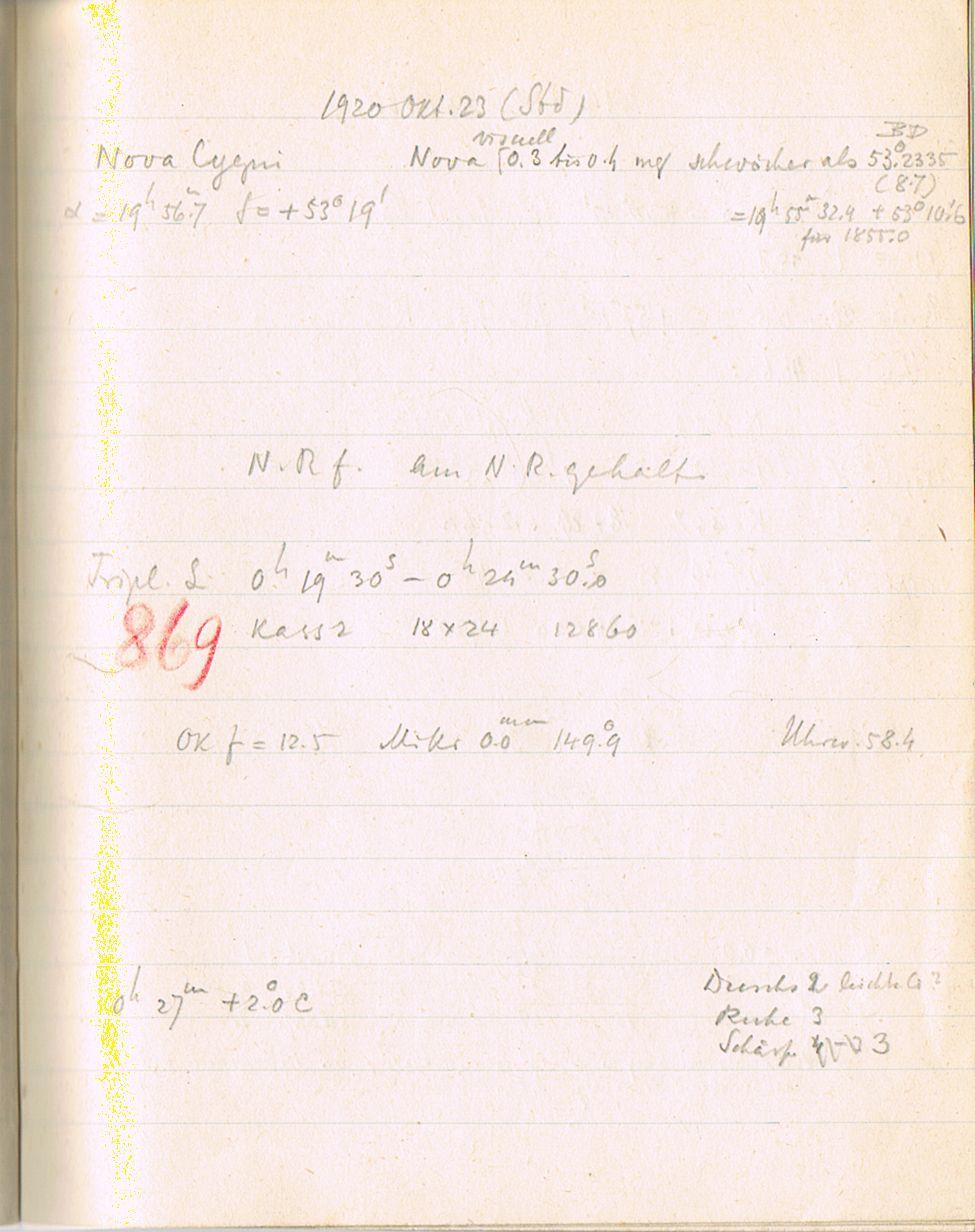 1920 Okt. 23 (Std)
visuell
BD
Nova Cygni Nova 0.3 bis 0.4 mg schwächer als 53°.2335
(8.7)
α = 19ʰ 56ᵐ.7 δ = +53° 19'
= 19ʰ 55ᵐ 32.4 +53° 10'.6
für 1855.0
N.R f. am N.R. gehalten
Tripl. S. 0ʰ 19ᵐ 30ˢ – 0ʰ 24ᵐ 30ˢ.0
869 Kass 2 18×24 12860
OK f = 12.5 Mikr 0.0ᵐᵐ 149°.9 Uhrw. 58.4
0ʰ 27ᵐ +2°.0 C
Durchs 2 leicht
Ruhe 3
Schärfe 3